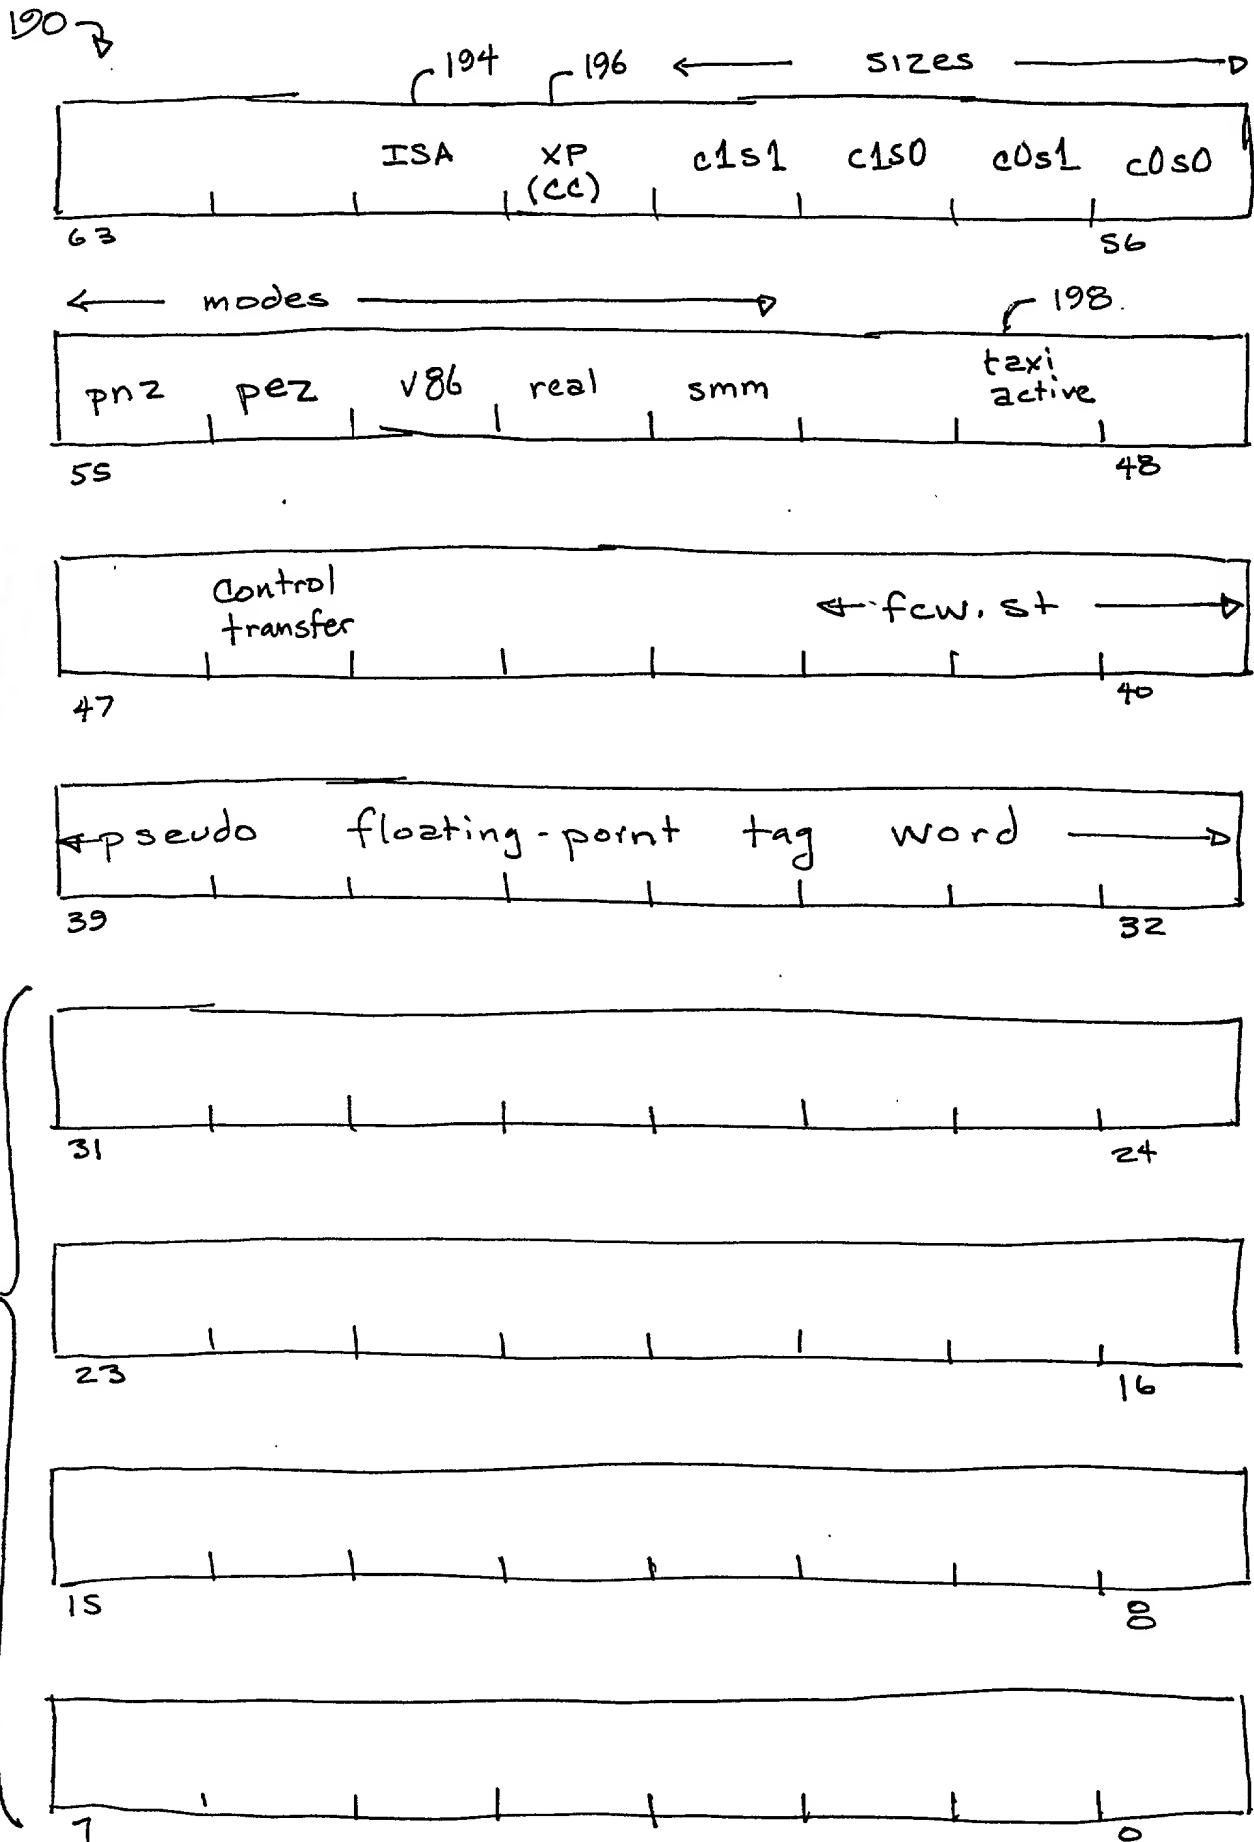 190
194 196 sizes
ISA XP c1s1 c1s0 c0s1 c0s0
(CC)
63 56
modes 198
pnz pez v86 real smm taxi
active
55 48
Control
transfer fcw.st
47 40
pseudo floating-point tag word
39 32
31 24
23 16
15 8
7 0